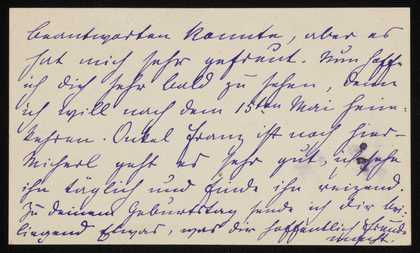 beantworten konnte, aber es
hat mich sehr gefreut. Nun hoffe
ich dich sehr bald zu sehen, denn
ich will nach dem 15ten Mai heim-
kehren. Onkel Franz ist noch hier-
Micherl geht es sehr gut, ich sehe
ihn täglich und finde ihn reizend.
Zu deinem Geburtstag sende ich dir bei-
liegend Etwas, was dir hoffentlich Freude
macht.